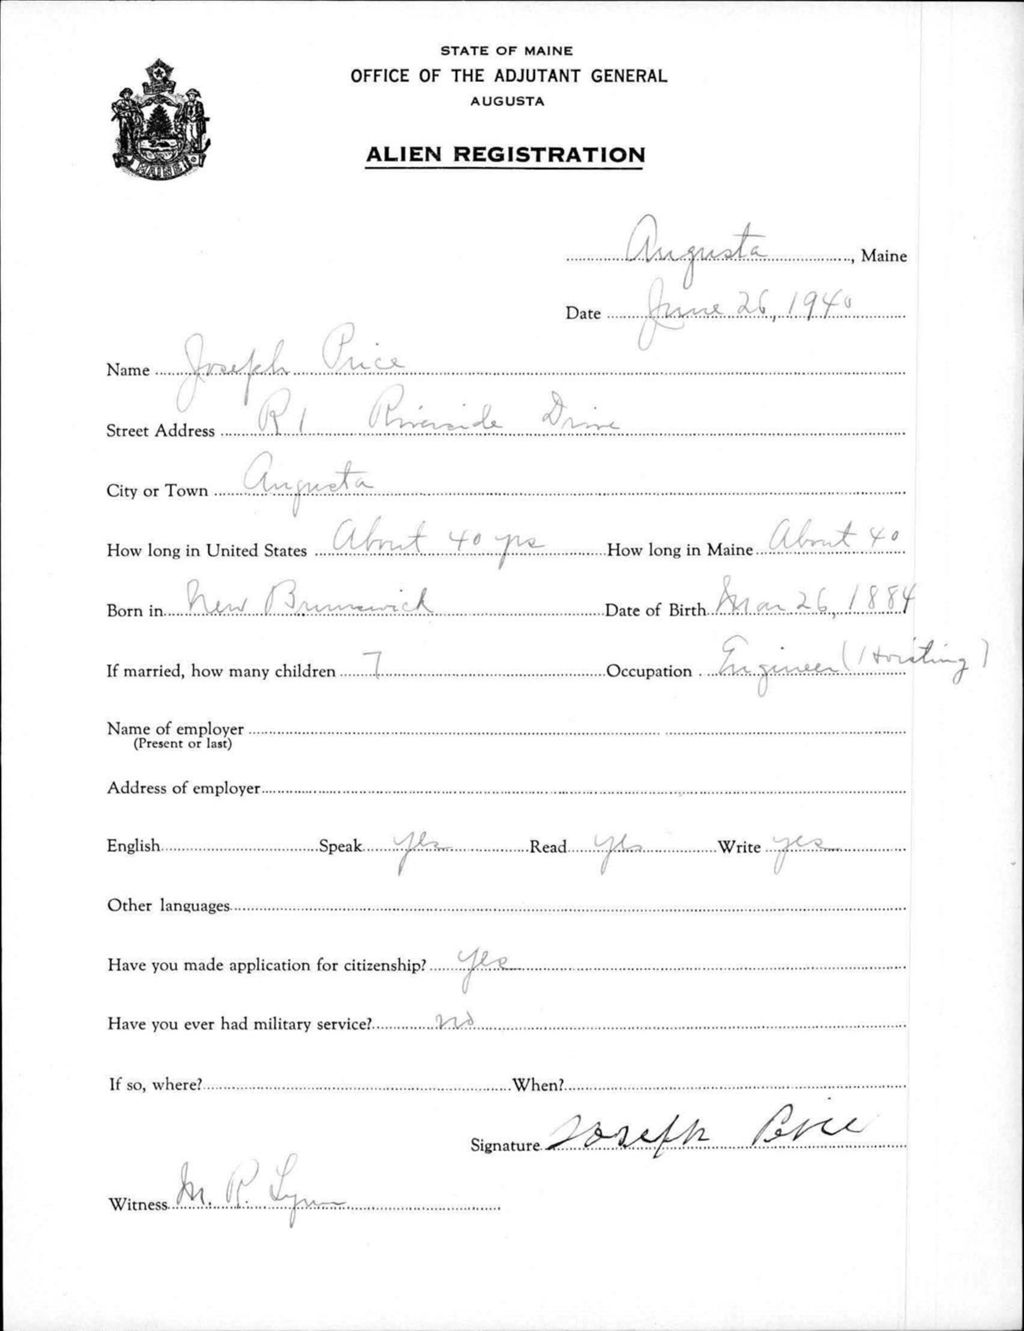 STATE OF MAINE
OFFICE OF THE ADJUTANT GENERAL
AUGUSTA
ALIEN REGISTRATION
MAINE
Augusta, Maine
Date June 26, 1940
Name Joseph Price
Street Address R 1 Riverside Drive
City or Town Augusta
How long in United States About 40 yrs How long in Maine About 40
Born in New Brunswick Date of Birth Mar 26, 1884
If married, how many children 7 Occupation Engineer (Hoisting)
Name of employer
(Present or last)
Address of employer
English Speak yes Read yes Write yes
Other languages
Have you made application for citizenship? yes
Have you ever had military service? no
If so, where? When?
Signature Joseph Price
Witness M. R. Lynn